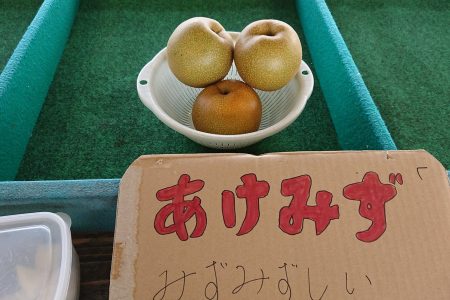 あけみず
みずみずしい